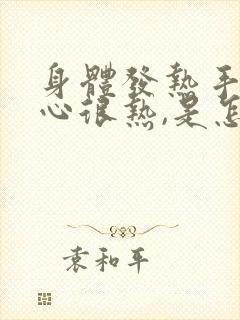 身體發熱手
心很熱,是怎
袁和平